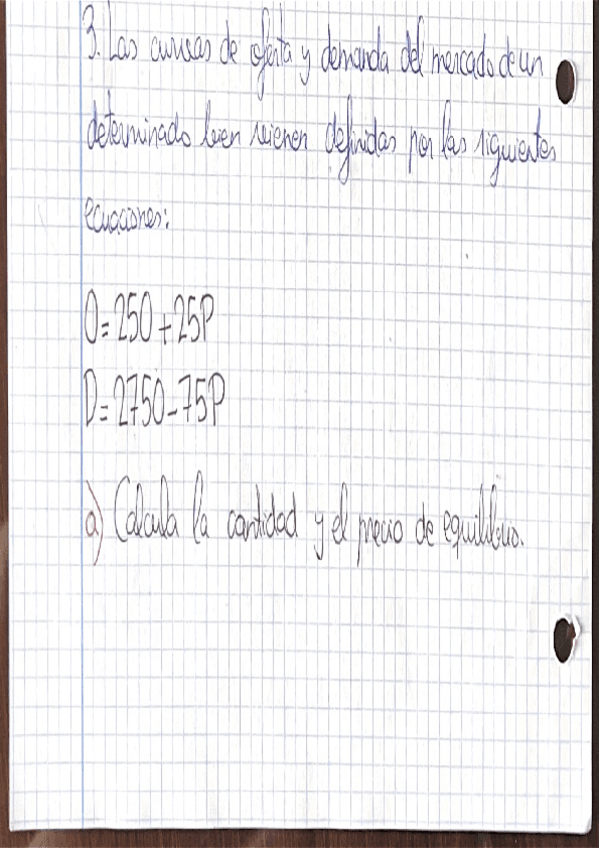 3. Las curvas de oferta y demanda del mercado de un
determinado bien vienen definidas por las siguientes
ecuaciones:
O=250+25P
D=2750-75P
a) Calcula la cantidad y el precio de equilibrio.